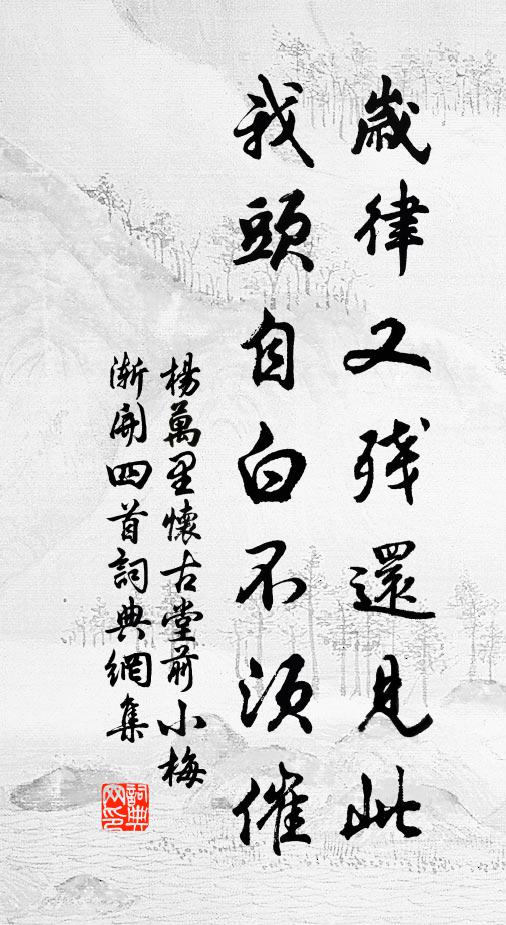 歲律又殘還見此
我頭自白不須催
楊萬里懷古堂前小梅
漸開四首詞典網集
詞典
网印